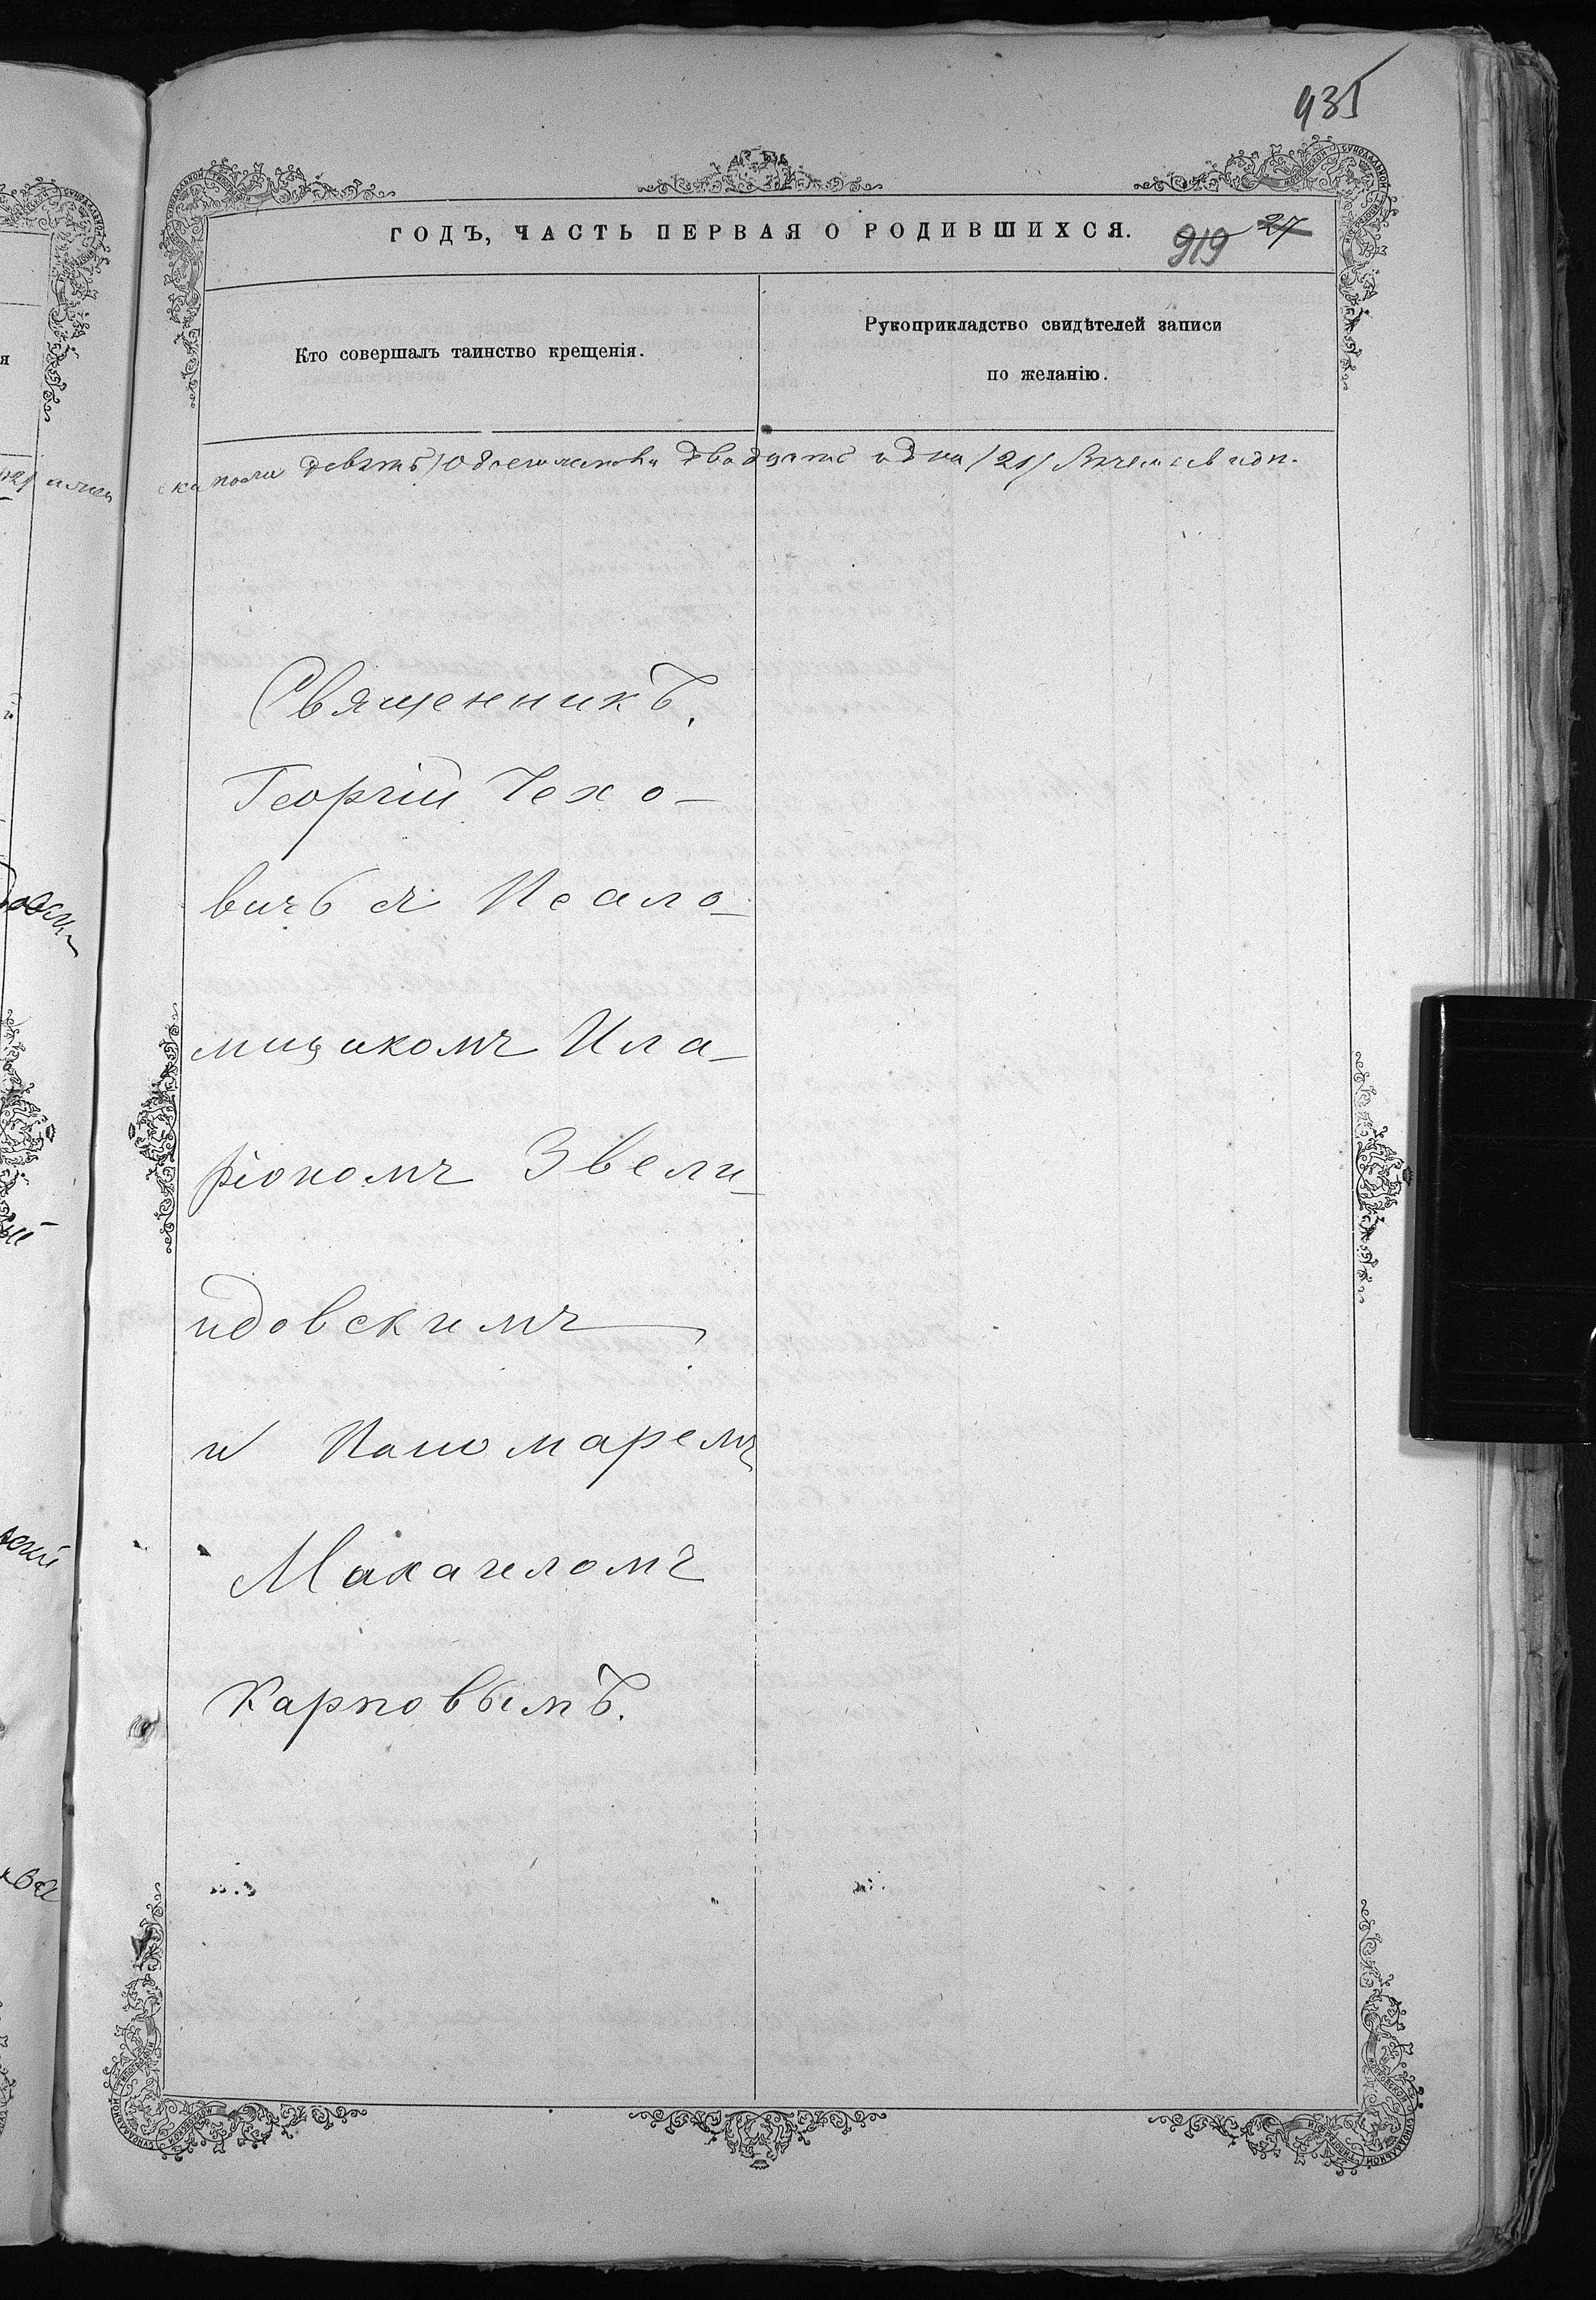 935
ГОДЪ, ЧАСТЬ ПЕРВАЯ О РОДИВШИХСЯ.
919 27
Кто совершалъ таинство крещенія.
Рукоприкладство свидѣтелей записи
по желанію.
девять двадцать одна /21/
Священникъ
Георгій Чехо-
вичъ съ Псало-
мщикомъ Ила-
ріономъ Звели-
идовскимъ
и Пономаремъ
Михаиломъ
Карповымъ.